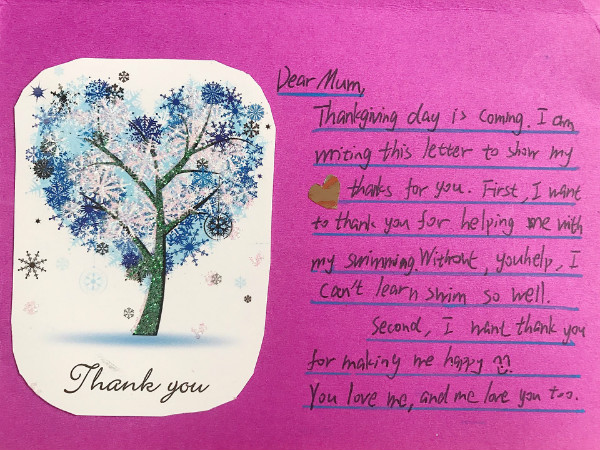 Dear Mum,
Thankgiving day is coming. I am
writing this letter to show my
thanks for you. First, I want
to thank you for helping me with
my swimming. Without, youhelp, I
can't learn shim so well.
Second, I want thank you
for making me happy
You love me, and me love you too.
Thank you